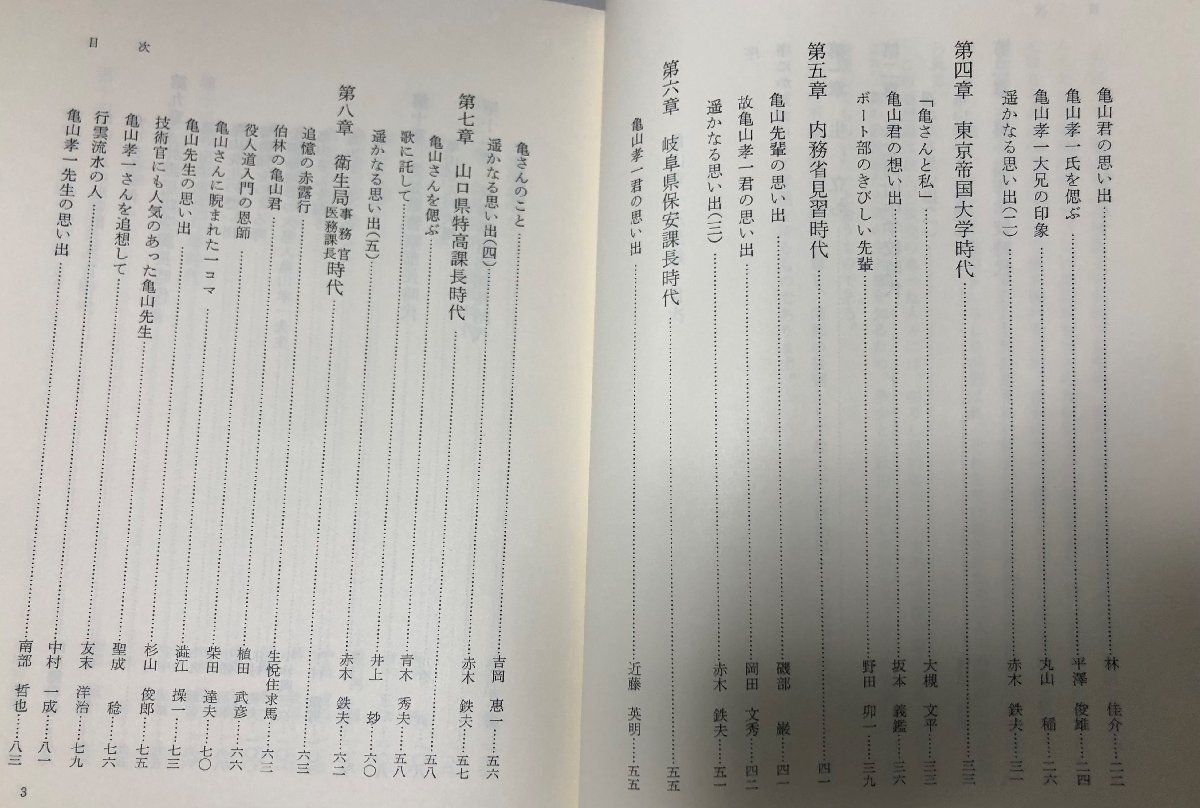 亀山君の思い出……………林 佳介…二二
亀山孝一氏を偲ぶ……………平澤 俊雄…二四
亀山孝一大兄の印象……………丸山 稲…二六
遥かなる思い出(二)……………赤木 鉄夫…三一
第四章 東京帝国大学時代……………三三
「亀さんと私」……………大槻 文平…三三
亀山君の想い出……………坂本 義鑑…三六
ボート部のきびしい先輩……………野田 卯一…三九
第五章 内務省見習時代……………四一
亀山先輩の思い出……………磯部 巌…四一
故亀山孝一君の思い出……………岡田 文秀…四二
遥かなる思い出(三)……………赤木 鉄夫…五一
第六章 岐阜県保安課長時代……………五五
亀山孝一君の思い出……………近藤 英明…五五
目次
亀さんのこと……………吉岡 惠一…五六
遥かなる思い出(四)……………赤木 鉄夫…五七
第七章 山口県特高課長時代……………五八
亀山さんを偲ぶ……………青木 秀夫…五八
歌に託して……………井上 妙…六〇
遥かなる思い出(五)……………赤木 鉄夫…六二
第八章 衛生局事務官医務課長時代……………六三
追憶の赤露行……………生悦住求馬…六三
伯林の亀山君……………植田 武彦…六六
役人道入門の恩師……………柴田 達夫…七〇
亀山さんに睨まれた一コマ……………澁江 操一…七三
亀山先生の思い出……………杉山 俊郎…七五
技術官にも人気のあった亀山先生……………聖成 稔…七六
亀山孝一さんを追想して……………友末 洋治…七九
行雲流水の人……………中村 一成…八一
亀山孝一先生の思い出……………南部 哲也…八三
3